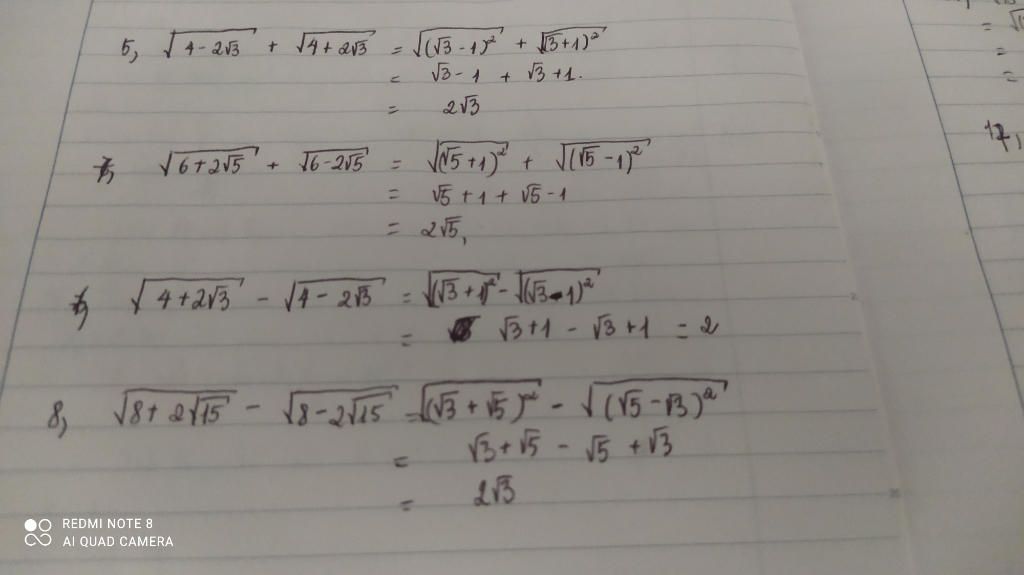 5, √(4-2√3) + √(4+2√3) = √((√3-1)²) + √((√3+1)²)
= √3-1 + √3+1.
= 2√3
7, √(6+2√5) + √(6-2√5) = √((√5+1)²) + √((√5-1)²)
= √5+1+√5-1
= 2√5,
√(4+2√3) - √(4-2√3) = √((√3+1)²) - √((√3-1)²)
= √3+1 - √3+1 = 2
8, √(8+2√15) - √(8-2√15) = √((√3+√5)²) - √((√5-√3)²)
= √3+√5 - √5+√3
= 2√3
17,
REDMI NOTE 8
AI QUAD CAMERA